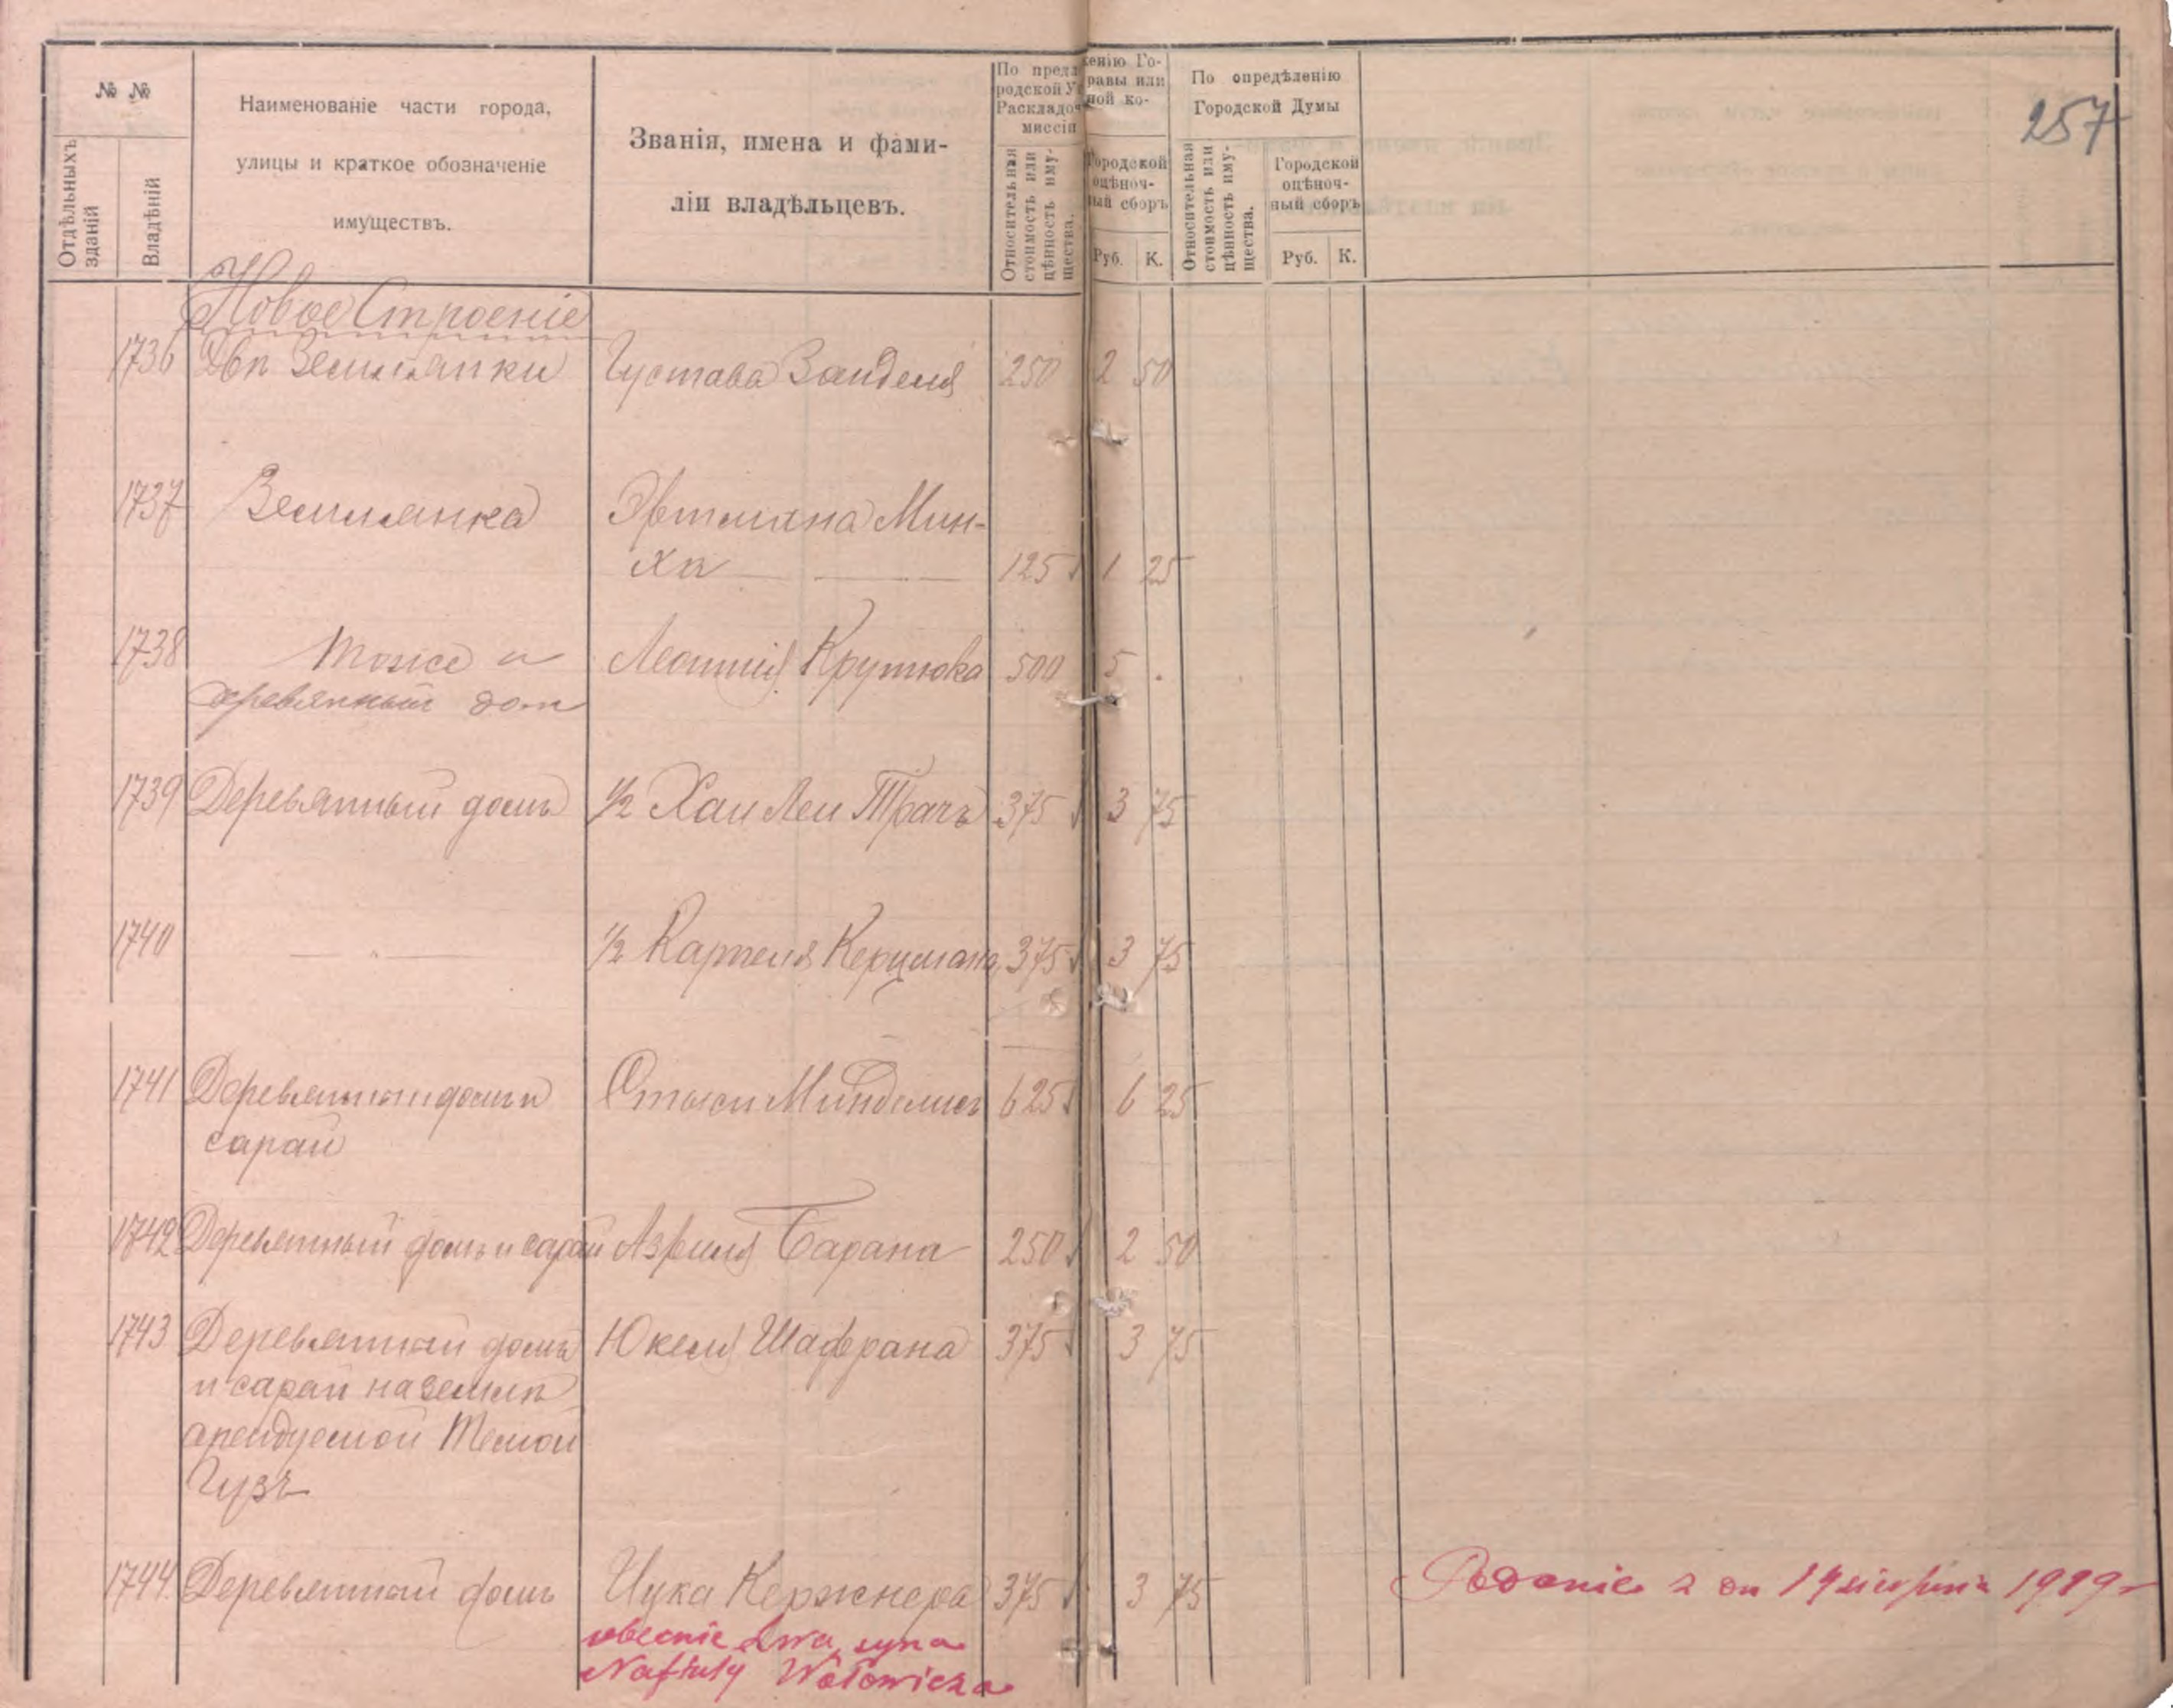 257
№ №
Отдѣльныхъ зданій
Владѣній
Наименованіе части города,
улицы и краткое обозначеніе
имуществъ.
Званія, имена и фами-
ліи владѣльцевъ.
По предложенію Го-
родской Управы или
Раскладочной ко-
миссіи
Относительная стоимость или цѣнность иму- щества.
Городской оцѣноч- ный сборъ
Руб. К.
По опредѣленію
Городской Думы
Относительная стоимость или цѣнность иму- щества.
Городской оцѣноч- ный сборъ
Руб. К.
Новое Строеніе
1736 Двѣ Землянки Густава Занделя 250 2 50
1737 Землянка Мин-
ха 125 1 25
1738 Тоже и Леонтія Крутюка 500 5 .
деревянный дом
1739 Деревянный домъ 1/2 Хаи Леи Трачъ 375 3 75
1740 — „ — 1/2 Кершмана 375 3 75
1741 Деревянный домъ и 625 6 25
сарай
1742 Деревянный домъ и сарай Азриля Барана 250 2 50
1743 Деревянный домъ Юкеля Шафрана 375 3 75
и сарай на землѣ
арендуемой Темой
Гузъ
1744 Деревянный домъ Ицка Кержнера 375 3 75
obecnie Lwa, syna
Naftuły Wołowicza
Podanie z dn 19 sierpnia 1929 r